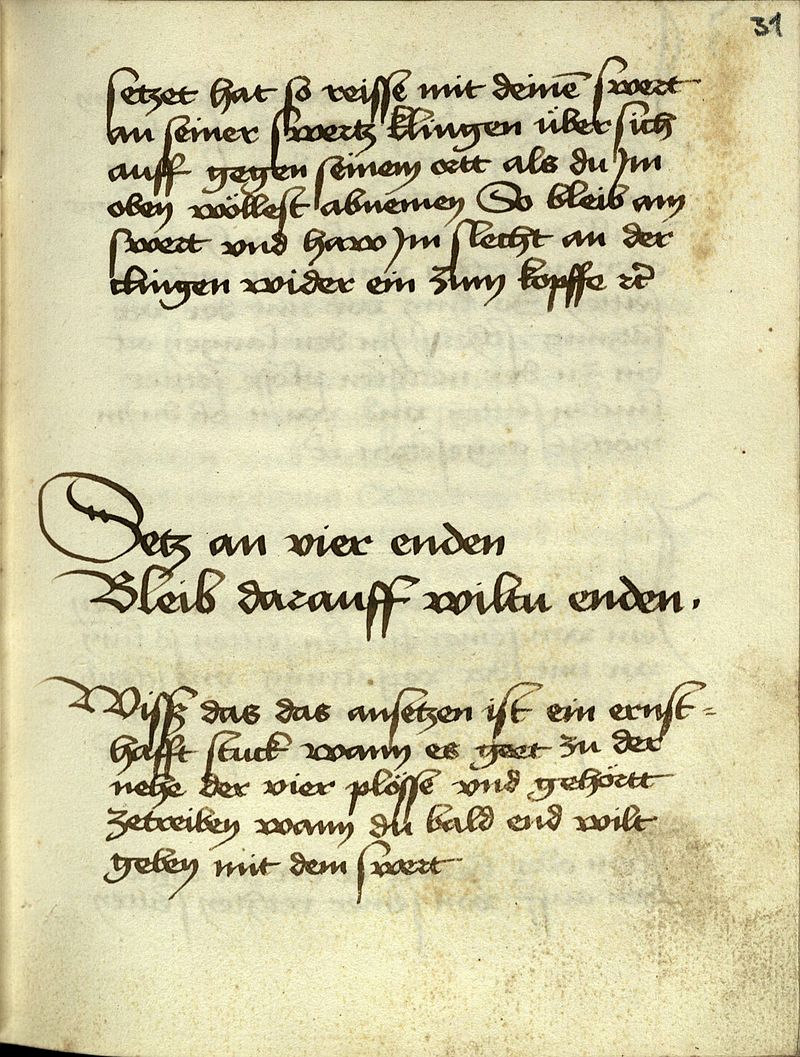 31
setzet hat so reisse mit deinē swert
an seiner swertz klingen über sich
auff gegen seinem ortt als du Im
oben wöllest abnemen So bleib am
swert vnd haw Im slecht an der
clingen wider ein zum kopffe rc̄
Setz an vier enden
Bleib darauff wiltu enden.
Wissz das das ansetzen ist ein ernst=
hafft stuck wann es geet zu der
nehe der vier plösse vnd gehörtt
zetreiben wann du bald end wilt
geben mit dem swert